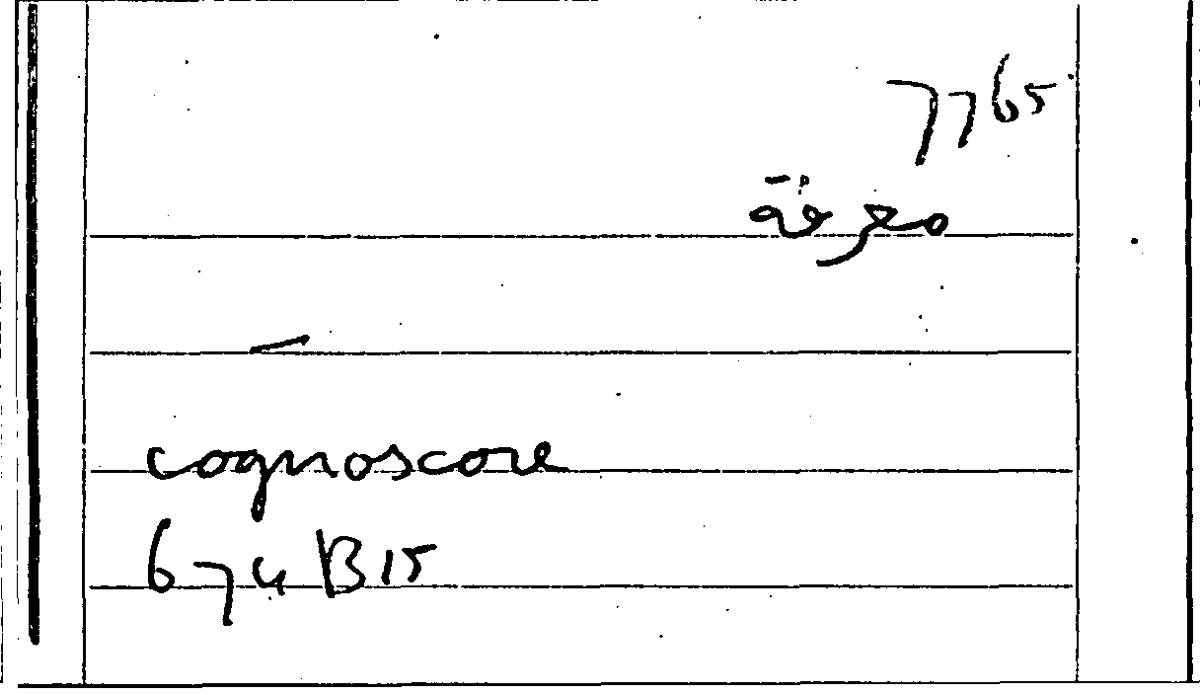 7765
معرفة
cognoscere
674 B 15